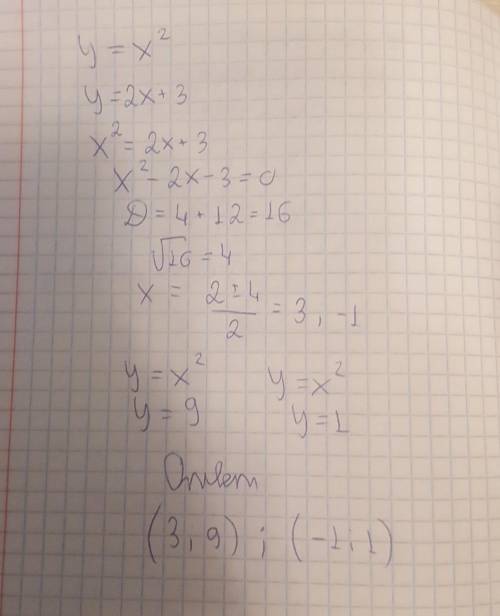 y = x²
y = 2x + 3
x² = 2x + 3
x² - 2x - 3 = 0
D = 4 + 12 = 16
√16 = 4
x = (2 ± 4)/2 = 3, -1
y = x² y = x²
y = 9 y = 1
Ответ
(3, 9) ; (-1; 1)